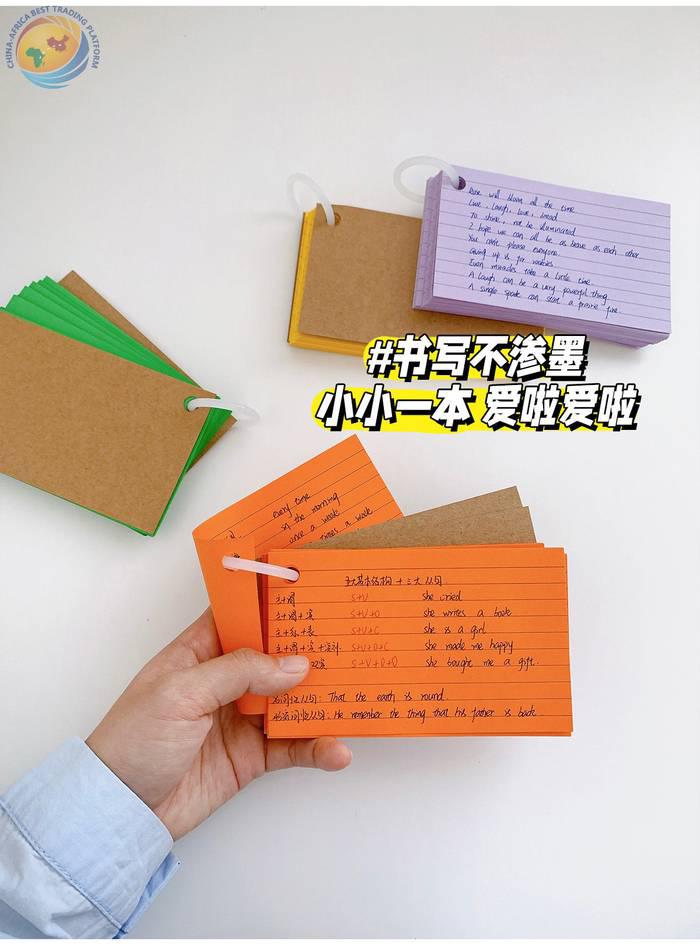 CHINA-AFRICA BEST TRADING PLATFORM
will bloom all the time
Live, laugh, love, bread
To shine, not be illuminated
I hope we can all be as brave as each other
You can't please everyone
Giving up is for rookies
Even miracles take a little time
A laugh can be a very powerful thing
A single spark can start a prairie fire
#书写不渗墨
小小一本 爱啦爱啦
every time
in the morning
once a week
times a week
五大基本结构 + 三大从句
主+谓 S+V she cried
主+谓+宾 S+V+O she writes a book
主+系+表 S+V+C she is a girl
主+谓+宾+宾补 S+V+O+C she made me happy
双宾 S+V+O+O she bought me a gift.
名词性从句: That the earth is round.
形容词性从句: He remember the thing that his father is back.